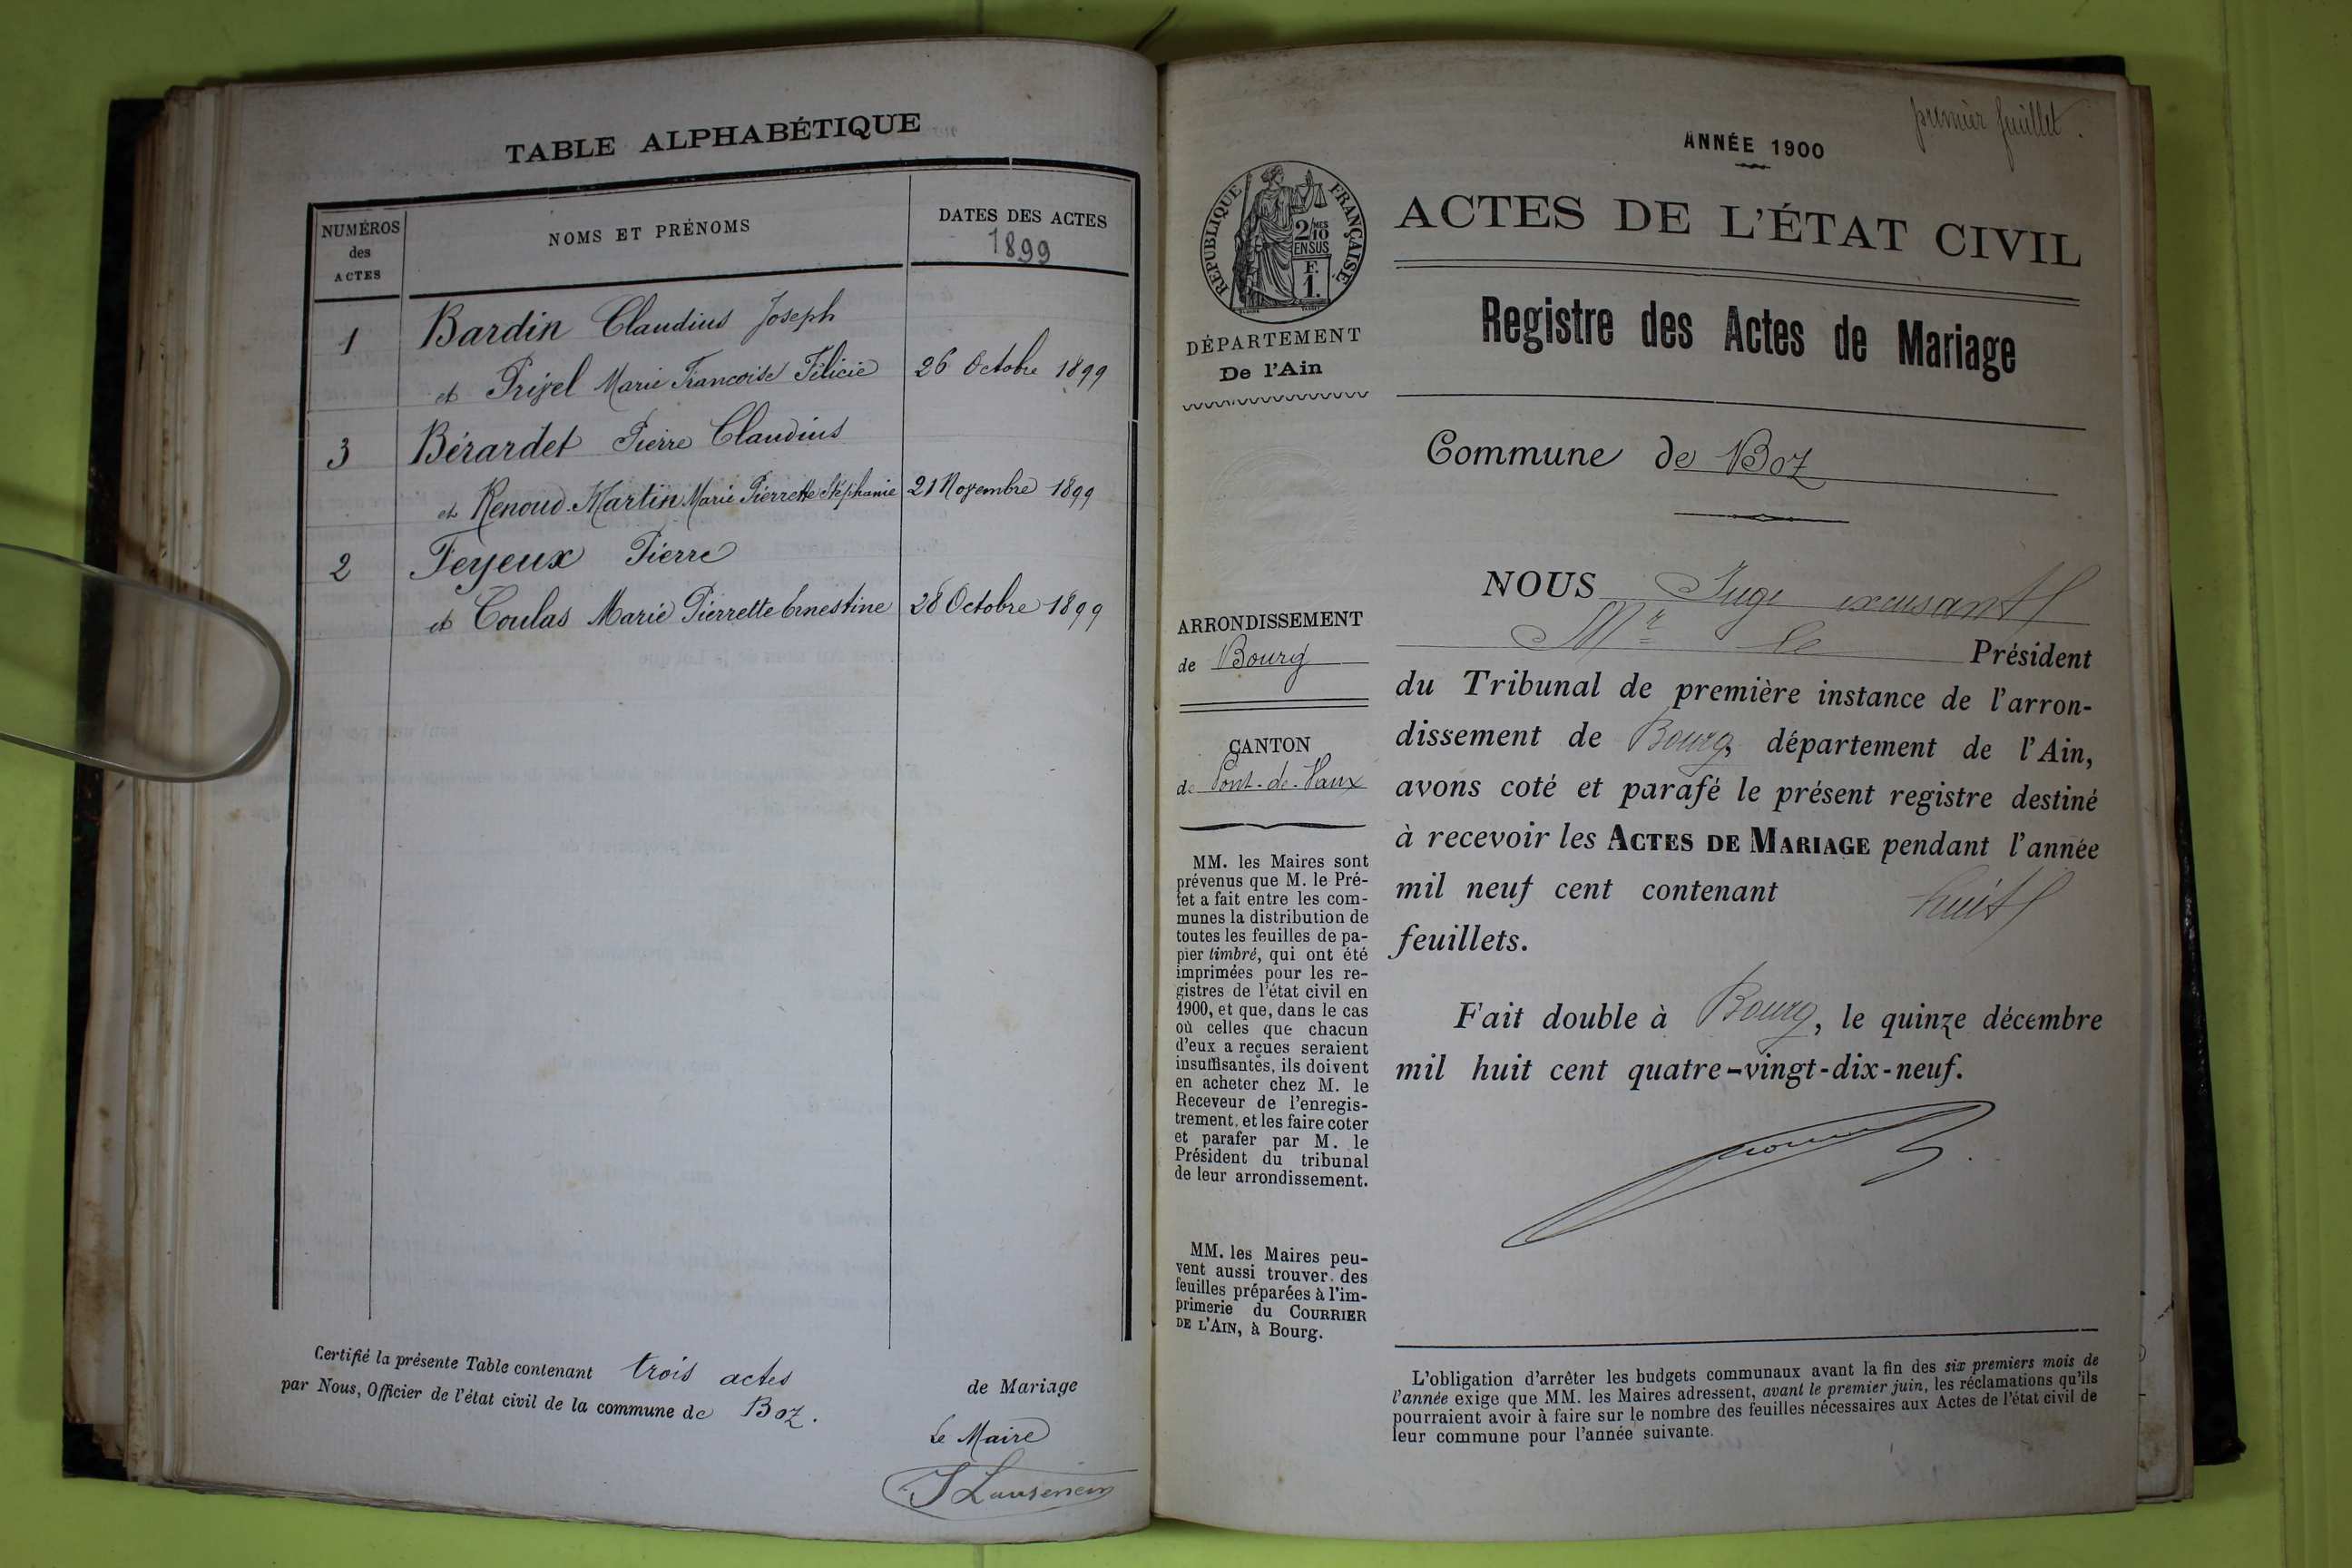 TABLE ALPHABÉTIQUE
NUMÉROS
des
ACTES
NOMS ET PRÉNOMS
DATES DES ACTES
1899
1 Bardin Claudius Joseph
et Privel Marie Francoise Félicie 26 Octobre 1899
3 Bérardet Pierre Claudius
et Renoud-Martin Marie Pierrette Stéphanie 21 Novembre 1899
2 Feyeux Pierre
et Coulas Marie Pierrette Ernestine 28 Octobre 1899
Certifié la présente Table contenant trois actes de Mariage
par Nous, Officier de l'état civil de la commune de Boz.
Le Maire
premier feuillet.
ANNÉE 1900
RÉPUBLIQUE FRANÇAISE
2/10 MES
EN SUS
F.
1.
ACTES DE L'ÉTAT CIVIL
Registre des Actes de Mariage
DÉPARTEMENT
De l'Ain
Commune de Boz
ARRONDISSEMENT
de Bourg
CANTON
de Pont-de-Vaux
MM. les Maires sont
prévenus que M. le Pré-
fet a fait entre les com-
munes la distribution de
toutes les feuilles de pa-
pier timbré, qui ont été
imprimées pour les re-
gistres de l'état civil en
1900, et que, dans le cas
où celles que chacun
d'eux a reçues seraient
insuffisantes, ils doivent
en acheter chez M. le
Receveur de l'enregis-
trement, et les faire coter
et parafer par M. le
Président du tribunal
de leur arrondissement.
MM. les Maires peu-
vent aussi trouver des
feuilles préparées à l'im-
primerie du COURRIER
DE L'AIN, à Bourg.
NOUS Juge excusant
Mr le Président
du Tribunal de première instance de l'arron-
dissement de Bourg, département de l'Ain,
avons coté et parafé le présent registre destiné
à recevoir les ACTES DE MARIAGE pendant l'année
mil neuf cent contenant huit
feuillets.
Fait double à Bourg, le quinze décembre
mil huit cent quatre-vingt-dix-neuf.
L'obligation d'arrêter les budgets communaux avant la fin des six premiers mois de
l'année exige que MM. les Maires adressent, avant le premier juin, les réclamations qu'ils
pourraient avoir à faire sur le nombre des feuilles nécessaires aux Actes de l'état civil de
leur commune pour l'année suivante.